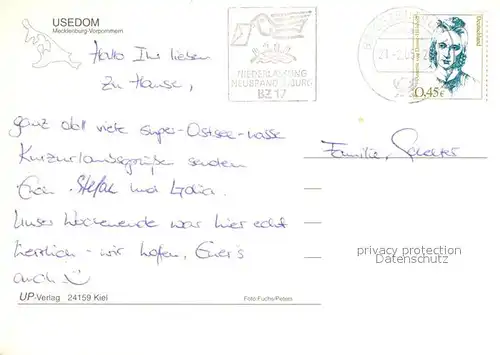 USEDOM
Mecklenburg-Vorpommern
Hallo Ihr lieben
zu Hause,
ganz doll viele super-Ostsee-nasse
Kurzurlaubsgrüße senden
Euch Stefan und Lydia.
Unser Wochenende war hier echt
herrlich - wir hoffen, Euer's
auch
UP-Verlag 24159 Kiel
Foto:Fuchs/Peters
NIEDERLASSUNG
NEUBRANDENBURG
BZ 17
Deutschland
0,45€
Familie
privacy protection
Datenschutz